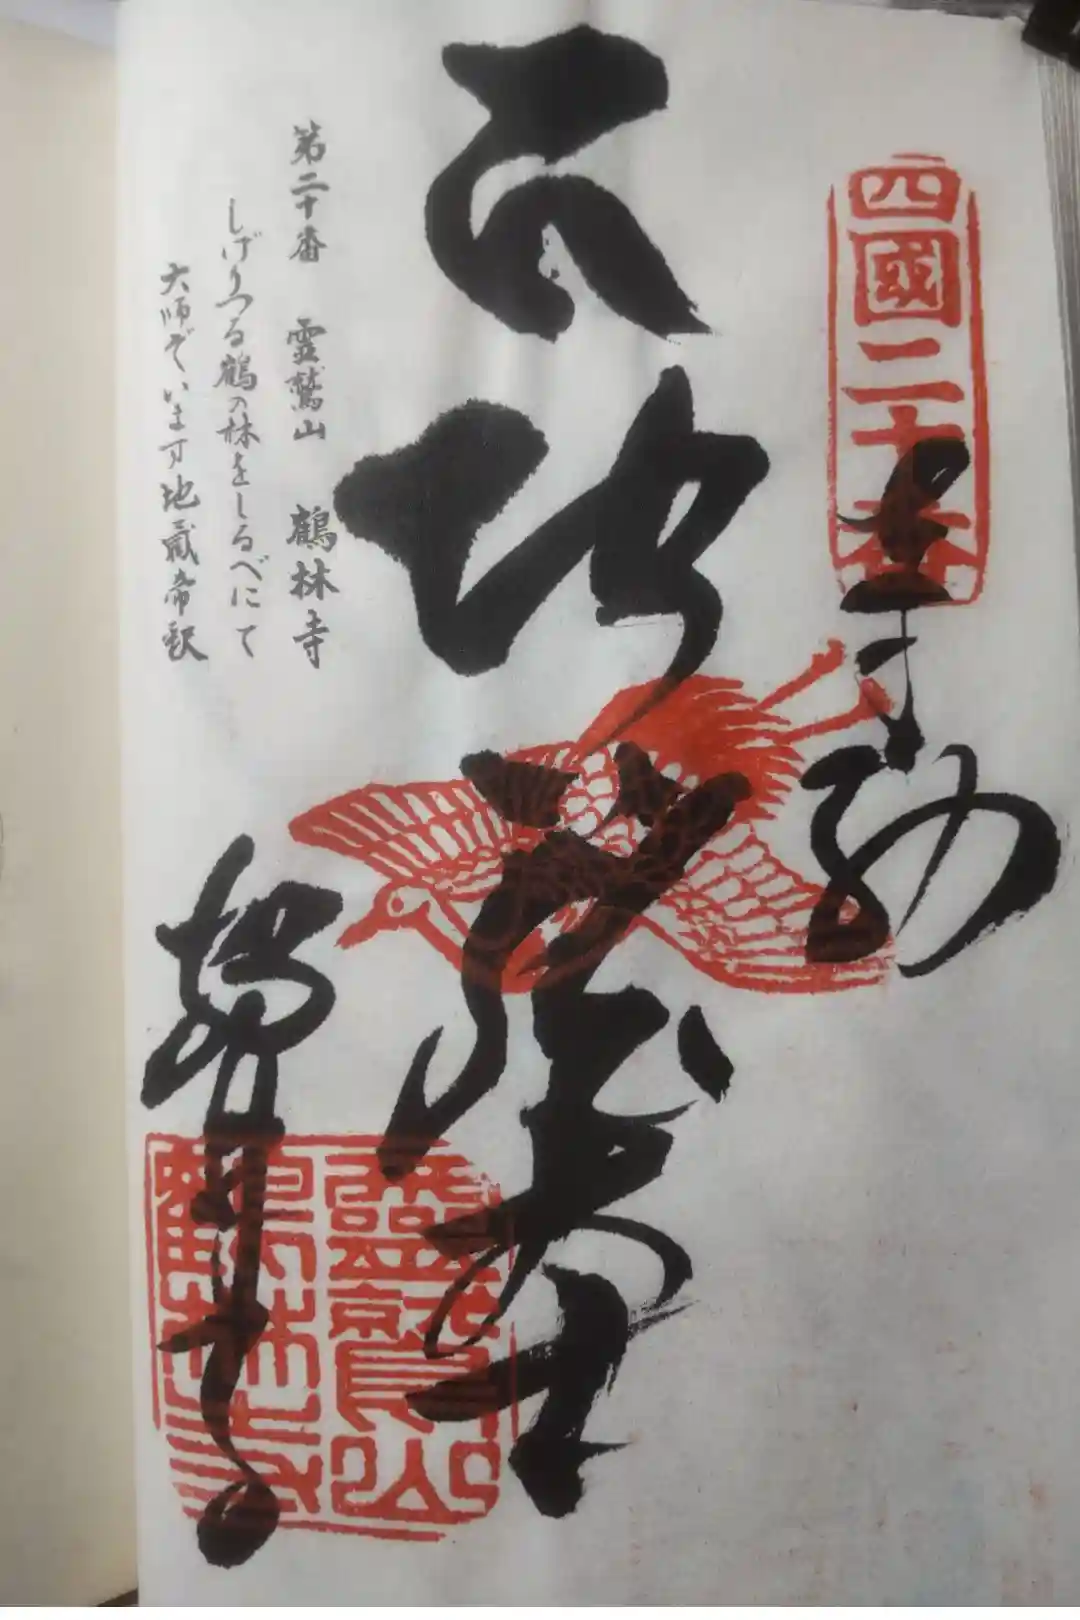 四國二十番
奉納
地蔵大士
第二十番 霊鷲山 鶴林寺
しげりつる鶴の林をしるべにて
大師ぞいます地蔵帝釈
靈鷲山
鶴林寺